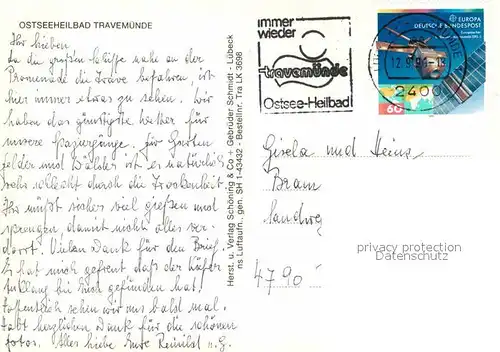 OSTSEEHEILBAD TRAVEMÜNDE
Ihr Lieben
da die großen Schiffe nahe an der
Promenade die Trave befahren, ist
hier immer etwas zu sehen. Wir
haben das günstigste Wetter für
unsere Spaziergänge. Für Garten
felder und Wälder ist es natürlich
sehr schlecht durch die Trockenheit.
Ihr müßt sicher viel gießen und
sprengen, damit nicht alles ver-
dorrt. Vielen Dank für den Brief.
Es hat mich gefreut daß der Käfer
Anklang bei Euch gefunden hat.
Hoffentlich sehn wir uns bald mal.
Habt herzlichen Dank für die schönen
Fotos. Alles Liebe Eure Reinhild u. G.
Herst. u. Verlag Schöning & Co + Gebrüder Schmidt · Lübeck
ns Luftaufn. gen. SH 1-43432 · Bestellnr. Tra LK 3898
immer
wieder
travemünde
Ostsee-Heilbad
12.9.91-18
2400
EUROPA
DEUTSCHE BUNDESPOST
60
Gisela und Heinz
Braun
Landweg
4790
privacy protection
Datenschutz